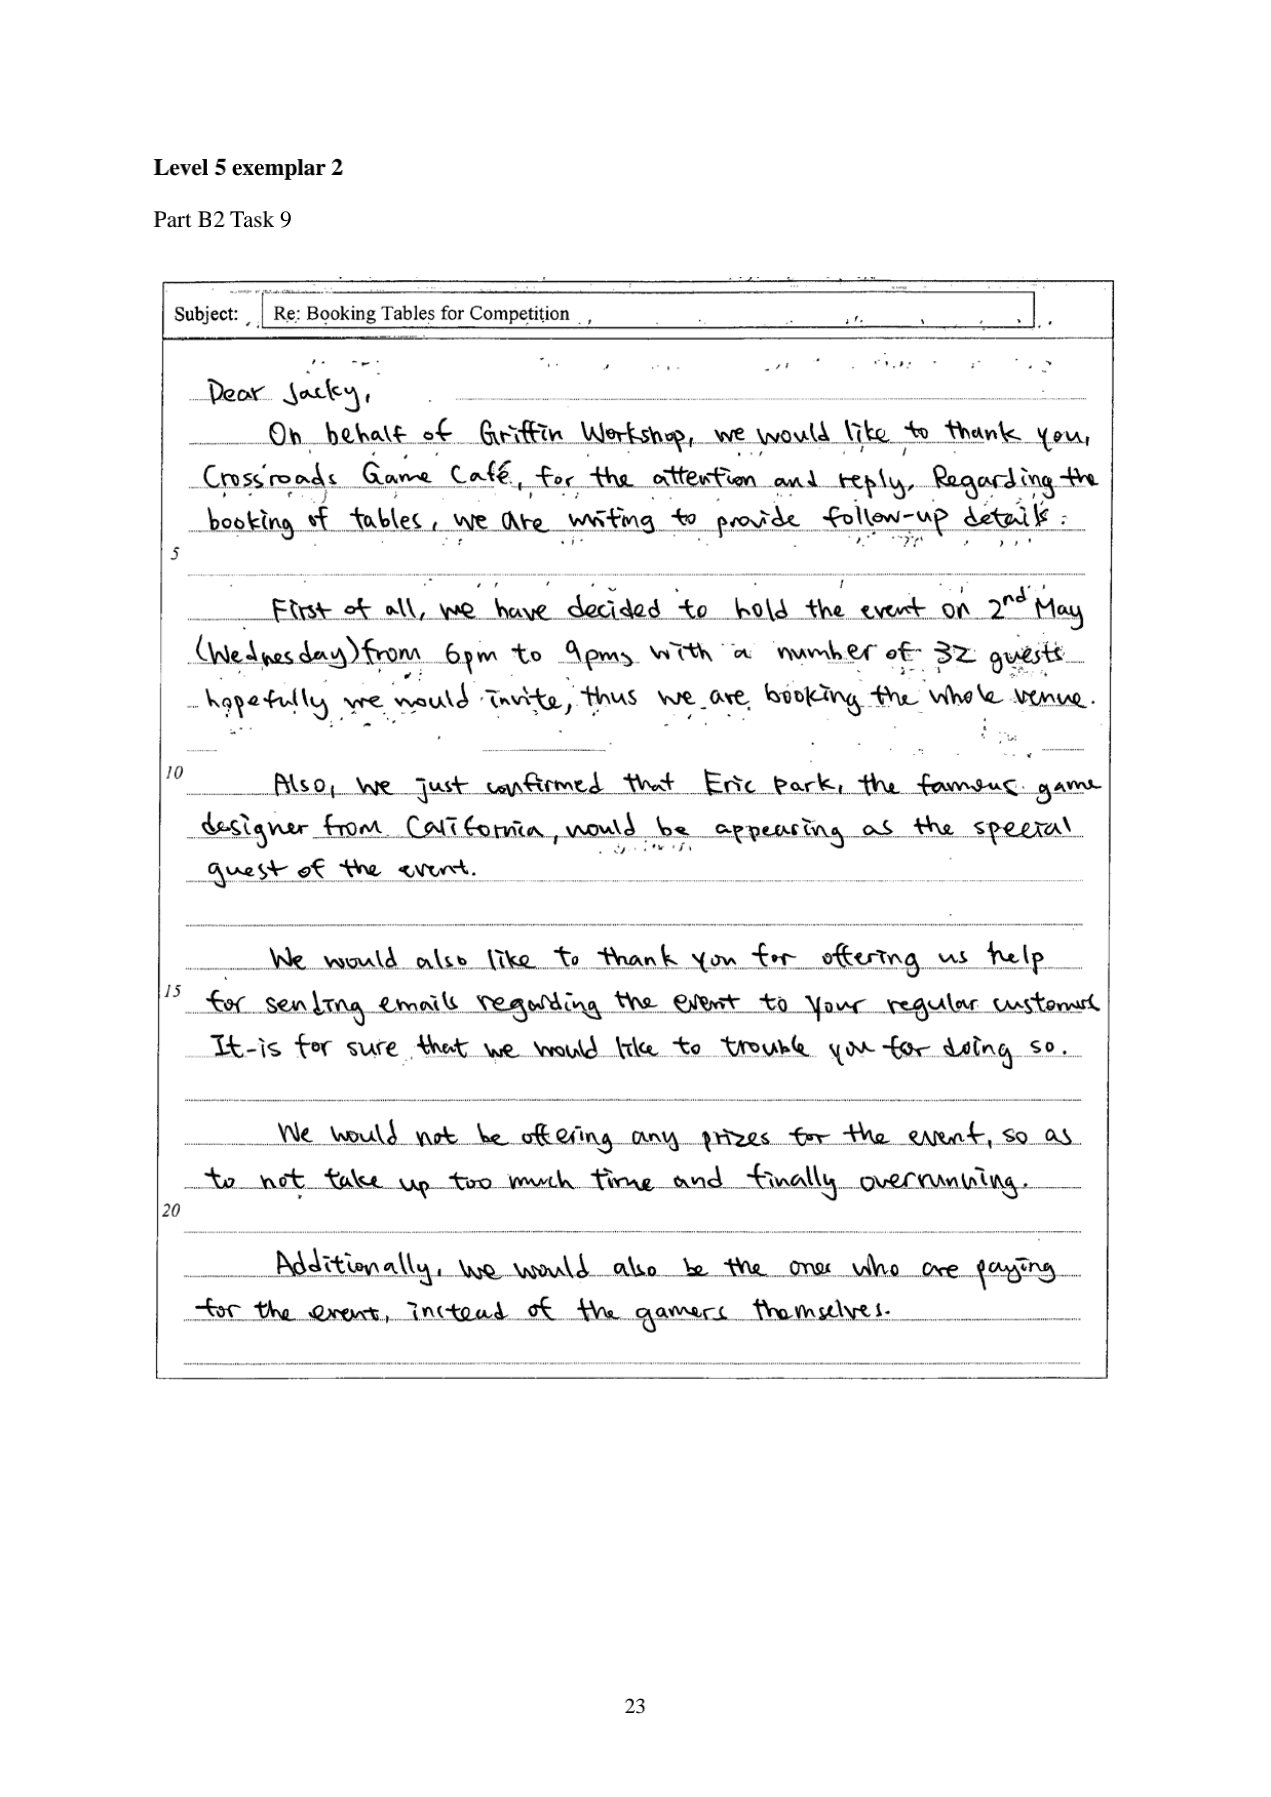 Level 5 exemplar 2
Part B2 Task 9
Subject: Re: Booking Tables for Competition
Dear Jacky,
On behalf of Griffin Workshop, we would like to thank you,
Crossroads Game Café, for the attention and reply. Regarding the
booking of tables, we are writing to provide follow-up details.
5
First of all, we have decided to hold the event on 2nd May
(Wednesday) from 6pm to 9pm, with a number of 32 guests
hopefully we would invite, thus we are booking the whole venue.
10
Also, we just confirmed that Eric Park, the famous game
designer from California, would be appearing as the special
guest of the event.
We would also like to thank you for offering us help
15
for sending emails regarding the event to your regular customers
It is for sure that we would like to trouble you for doing so.
We would not be offering any prizes for the event, so as
to not take up too much time and finally overrunning.
20
Additionally, we would also be the ones who are paying
for the event, instead of the gamers themselves.
23